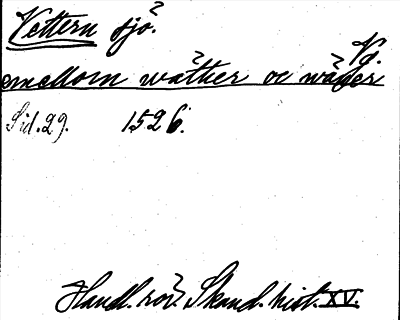 Vettern sjö.
Vg.
emellom wäther oc wäner
Sid. 29. 1526.
Handl. rör. Skand. hist. XV.